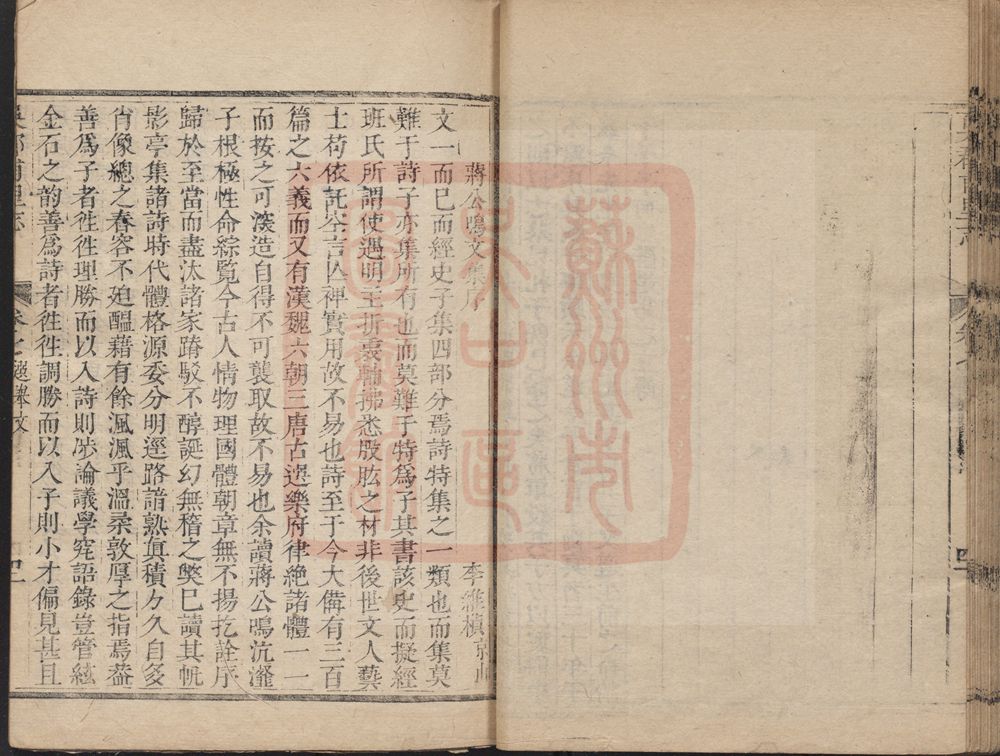 蔣公鳴文集序
李維楨京山
文一而已而經史子集四部分焉詩特集之一類也而集莫
難于詩子亦集所有也而莫難于特爲子其書該史而擬經
班氏所謂使遇明王折衷輔拂悉股肱之材非後世文人藝
士苟依託空言亾裨實用故不易也詩至于今大備有三百
篇之六義而又有漢魏六朝三唐古選樂府律絕諸體一一
而按之可湊造自得不可襲取故不易也余讀蔣公鳴沆瀣
子根極性命綜覽今古人情物理國體朝章無不揚扢詮序
歸於至當而盡汰諸家踳駁不醇誕幻無稽之獘已讀其帆
影亭集諸詩時代體格源委分明逕路諳熟眞積力久自爻
肖像總之春容不廹醖藉有餘渢渢乎溫柔敦厚之指焉葢
善爲子者徃徃理勝而以入詩則涉論議學究語錄豈管絃
金石之韵善爲詩者徃徃調勝而以入子則小才偏見甚且
吳郡甫里志
卷之
選舉文
蘇州市
圖